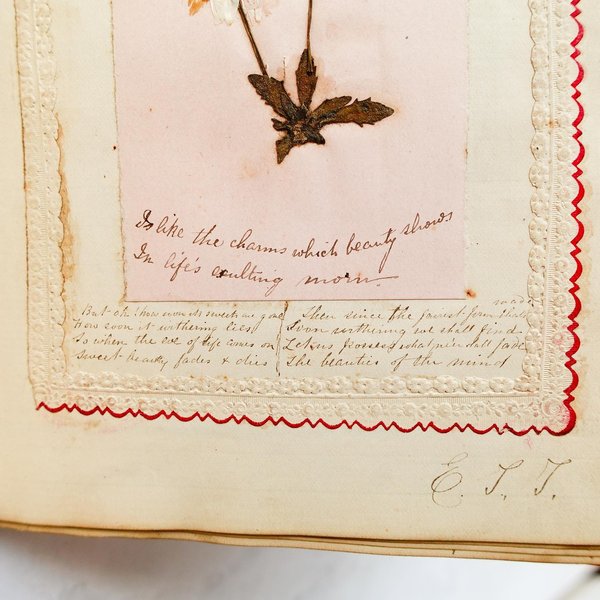 Is like the charms which beauty shows
In life's exulting morn.
But oh! how soon its sweets are gone
How soon it withering lies
So when the eve of life comes on
Sweet beauty fades & dies
Then since the fairest form that's
made
Soon withering we shall find
Let us possess what ne'er shall fade
The beauties of the mind
E. T. T.